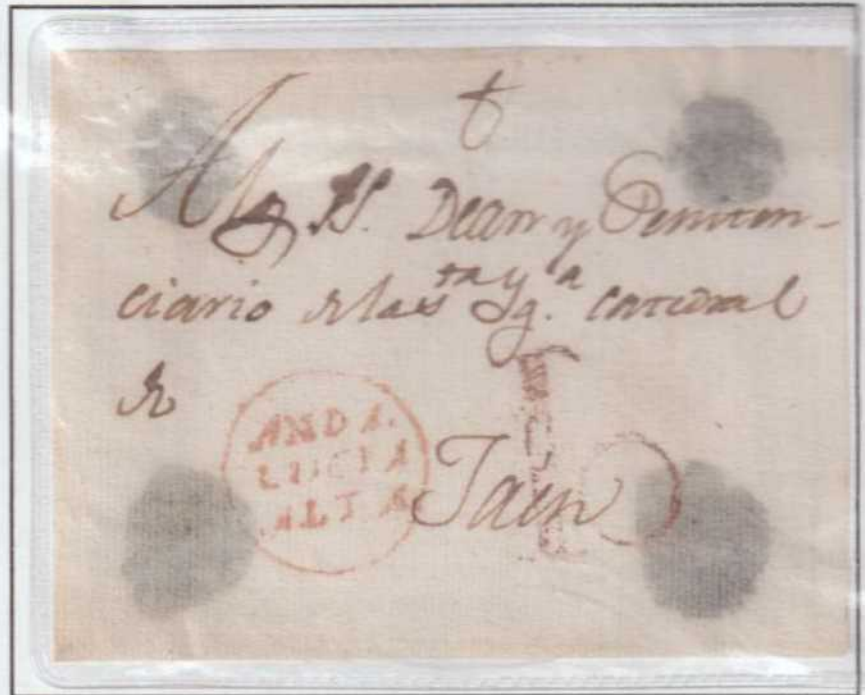 †
A los SS. Dean y Peniten-
ciario de la Sta Yga. Catedral
de
ANDA.
LUCIA
ALTA
Jaen